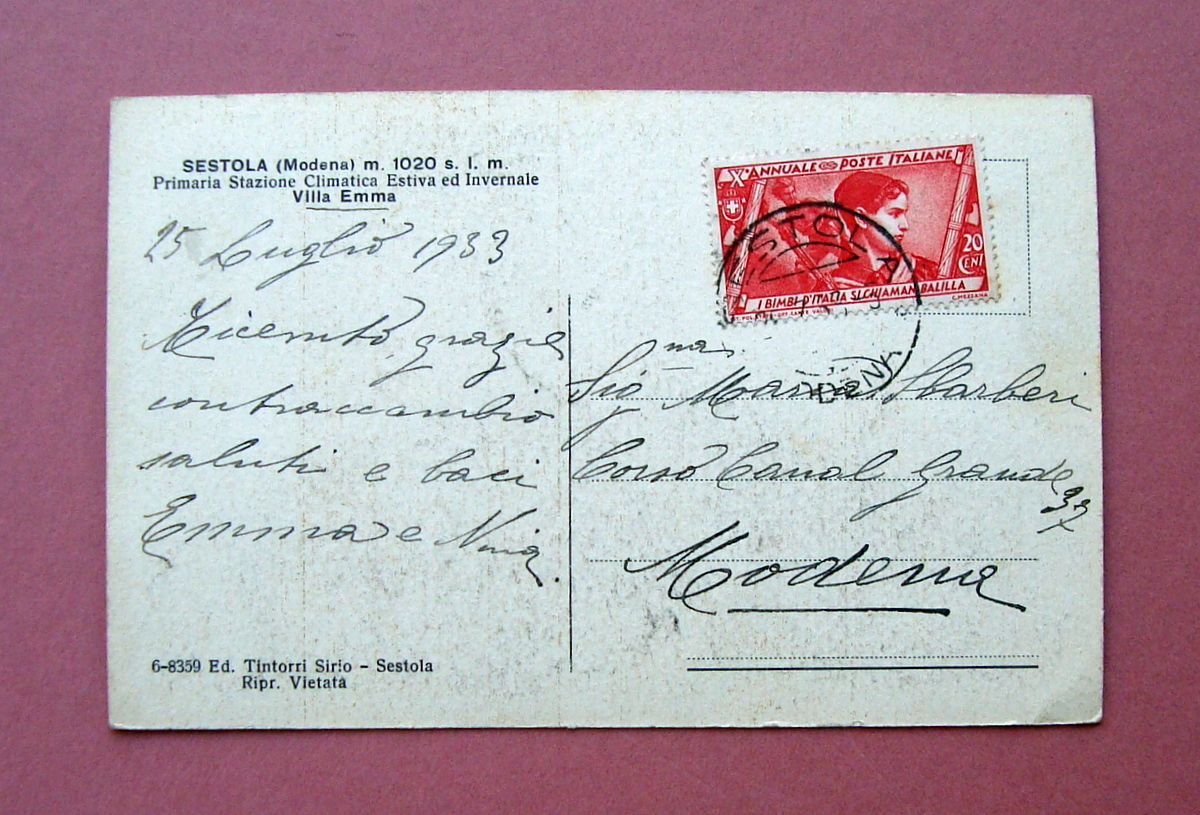 SESTOLA (Modena) m. 1020 s. l. m.
Primaria Stazione Climatica Estiva ed Invernale
Villa Emma
25 Luglio 1933
Ricevuto grazie
contraccambio
saluti e baci
Emma e Nina.
6-8359 Ed. Tintorri Sirio - Sestola
Ripr. Vietata
X° ANNUALE POSTE ITALIANE
20
CENT
I BIMBI D'ITALIA SI CHIAMAN BALILLA
C. MEZZANA
SESTOLA
Sig na Maria Sbarberi
Corso Canal Grande
37
Modena